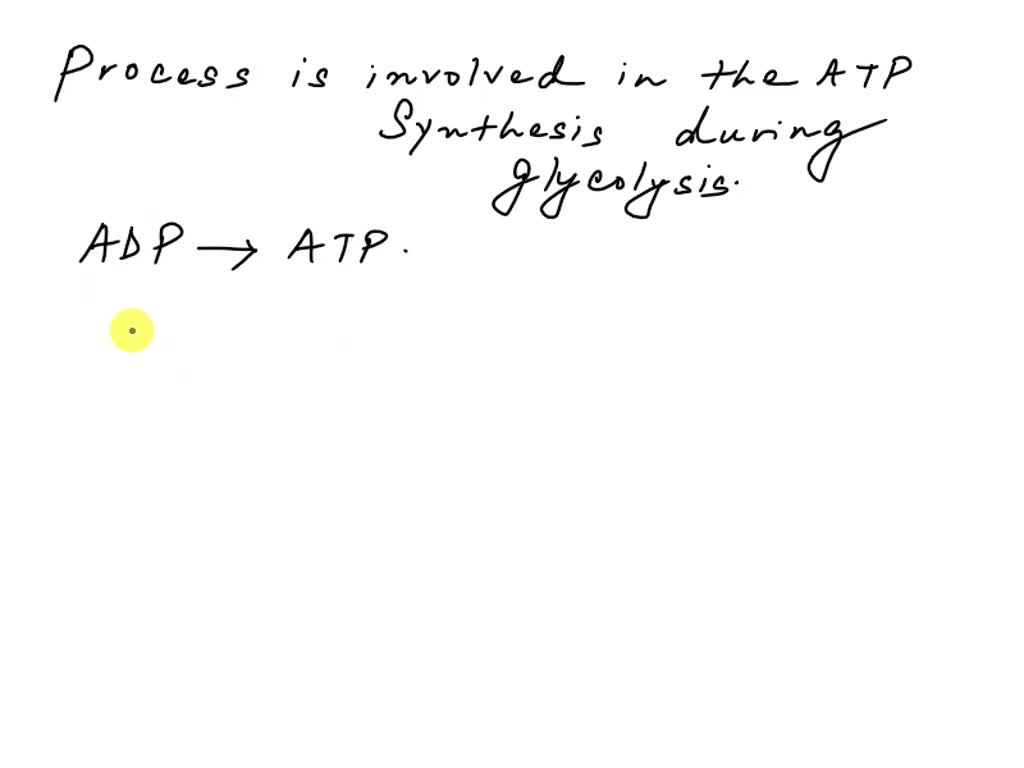 Process is involved in the ATP
Synthesis during
glycolysis.
ADP → ATP.